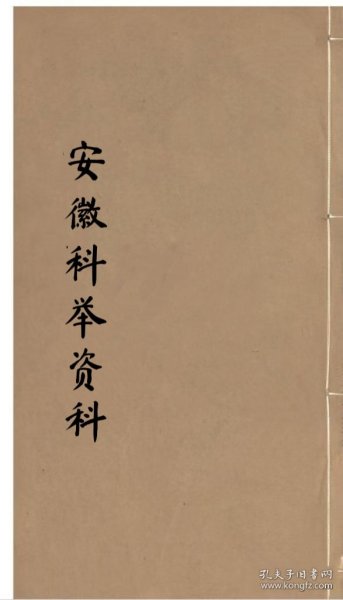 安徽科举资科
孔夫子旧书网
www.kongfz.com